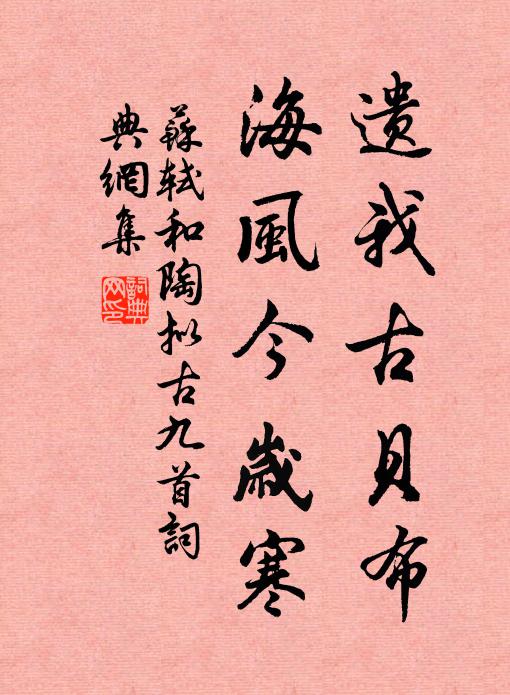 遺我古貝布
海風今歲寒
蘇軾和陶拟古九首詞
典網集
詞典
网印